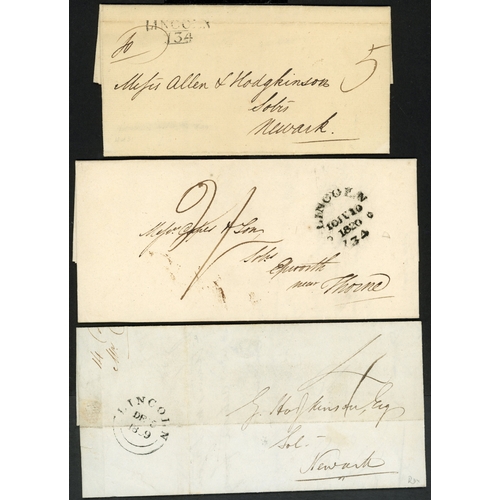 LINCOLN
134
Messrs Allen & Hodgkinson
Solrs
Newark.
5
LINCOLN
1820
134
Messrs
& Son
Solrs
Epworth
near Thorne
LINCOLN
G. Hodgkinson, Esq
Sol.
Newark